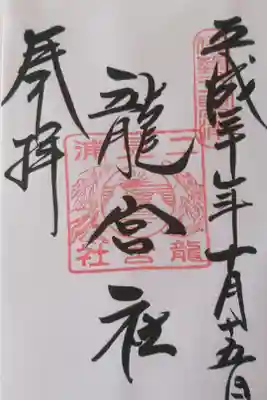 平成三十年十月十五日
龍宮社
奉拝
二見浦
龍宮社